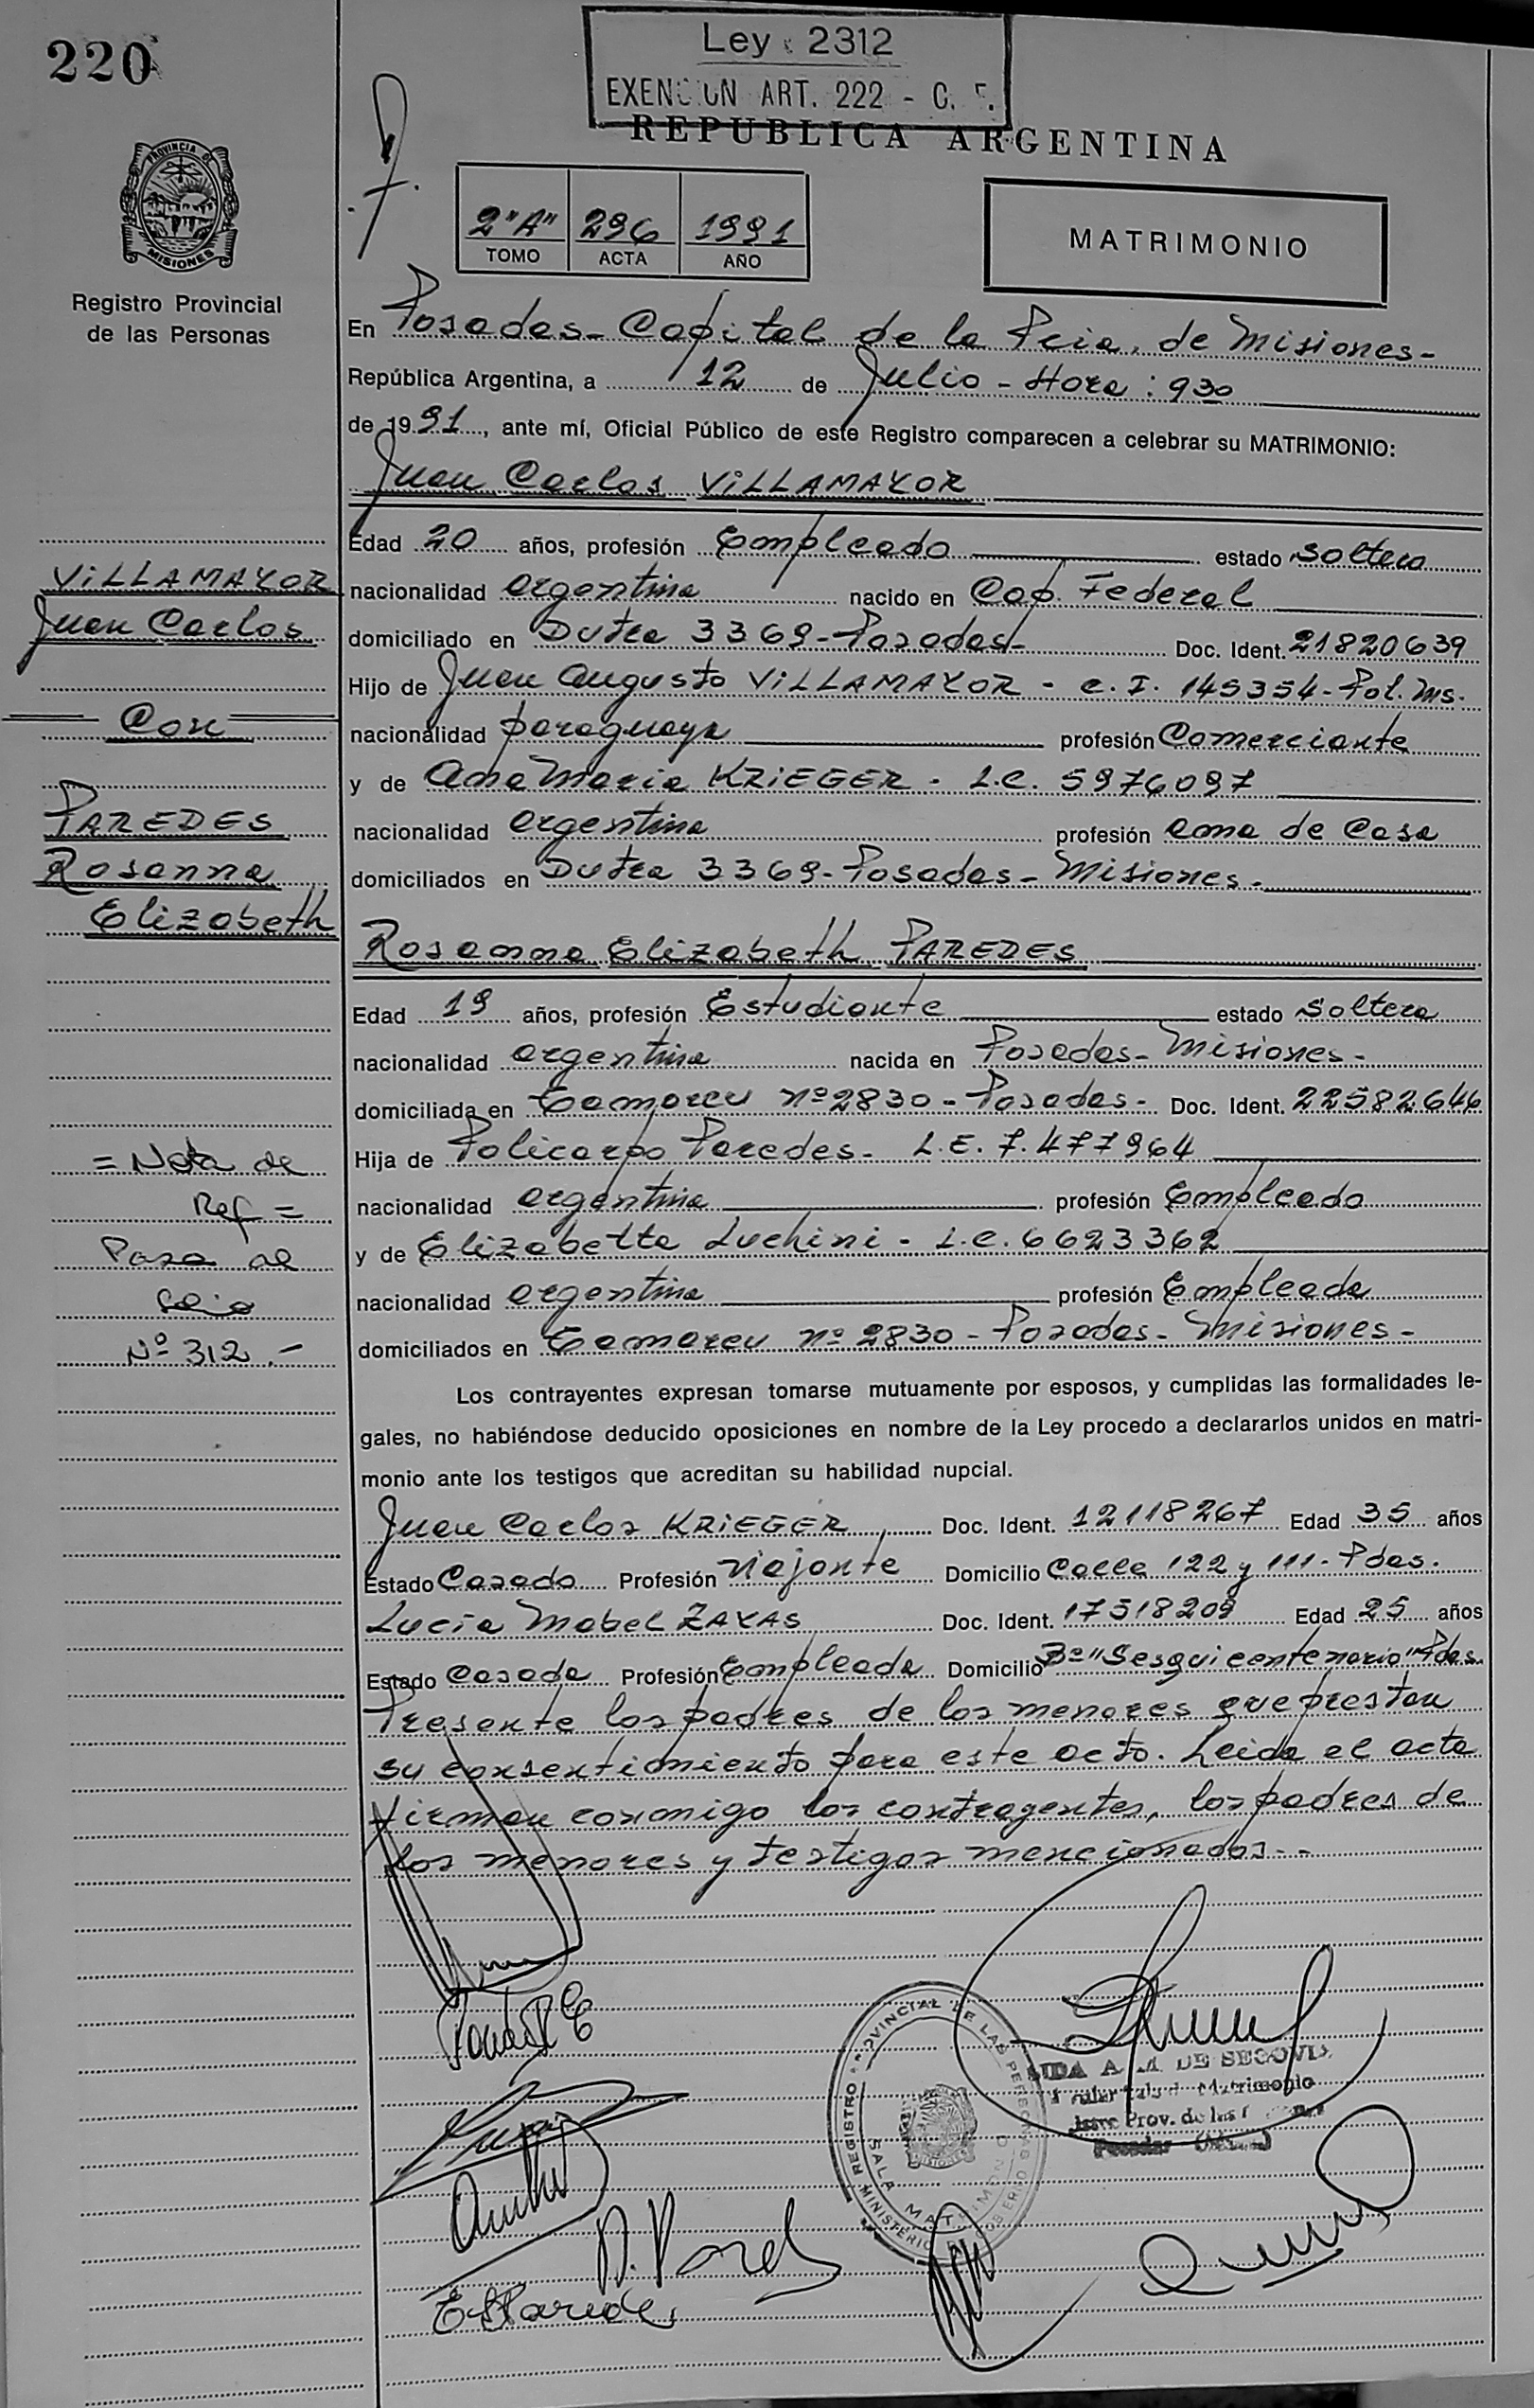 220
Ley 2312
EXENCION ART. 222 - C. F.
REPUBLICA ARGENTINA
PROVINCIA DE MISIONES
Registro Provincial
de las Personas
2"A" 296 1991
TOMO ACTA AÑO
MATRIMONIO
En Posadas - Capital de la Pcia. de Misiones -
República Argentina, a 12 de Julio - Hora: 930
de 1991, ante mí, Oficial Público de este Registro comparecen a celebrar su MATRIMONIO:
Juan Carlos VILLAMAYOR
Edad 20 años, profesión Empleado estado soltero
nacionalidad argentina nacido en Cap. Federal
domiciliado en Dutra 3369 - Posadas - Doc. Ident. 21820639
Hijo de Juan Augusto VILLAMAYOR - C.I. 145354 - Pol. Ms.
nacionalidad paraguaya profesión Comerciante
y de Ana Maria KRIEGER - L.C. 5976097
nacionalidad argentina profesión ama de Casa
domiciliados en Dutra 3369 - Posadas - Misiones -
VILLAMAYOR
Juan Carlos
Con
PAREDES
Rosanna
Elizabeth
Rosanna Elizabeth PAREDES
Edad 19 años, profesión Estudiante estado soltera
nacionalidad argentina nacida en Posadas - Misiones -
domiciliada en Tamareu nº 2830 - Posadas - Doc. Ident. 22582646
Hija de Policarpo Paredes - L.E. 7.477964
nacionalidad argentina profesión Empleado
y de Elizabetta Luchini - L.C. 6623362
nacionalidad argentina profesión Empleada
domiciliados en Tamareu nº 2830 - Posadas - Misiones -
= Nota de
Ref =
Pasa al
folio
Nº 312.-
Los contrayentes expresan tomarse mutuamente por esposos, y cumplidas las formalidades le-
gales, no habiéndose deducido oposiciones en nombre de la Ley procedo a declararlos unidos en matri-
monio ante los testigos que acreditan su habilidad nupcial.
Juan Carlos KRIEGER Doc. Ident. 12118267 Edad 35 años
Estado Casado Profesión Viajante Domicilio Calle 122 y 111 - Pdas.
Lucía Mabel ZAYAS Doc. Ident. 17518209 Edad 25 años
Estado Casada Profesión Empleada Domicilio Bº "Sesquicentenario" Pdas.
Presente los padres de los menores que prestan
su consentimiento para este acto. Leida el acta
firman conmigo los contrayentes, los padres de
los menores y testigos mencionados.-
REGISTRO PROVINCIAL DE LAS PERSONAS
SALA MATRIMONIO
MINISTERIO DE GOBIERNO
DE SEGOVIA
Matrimonio
Prov. de las
Posadas
E Paredes